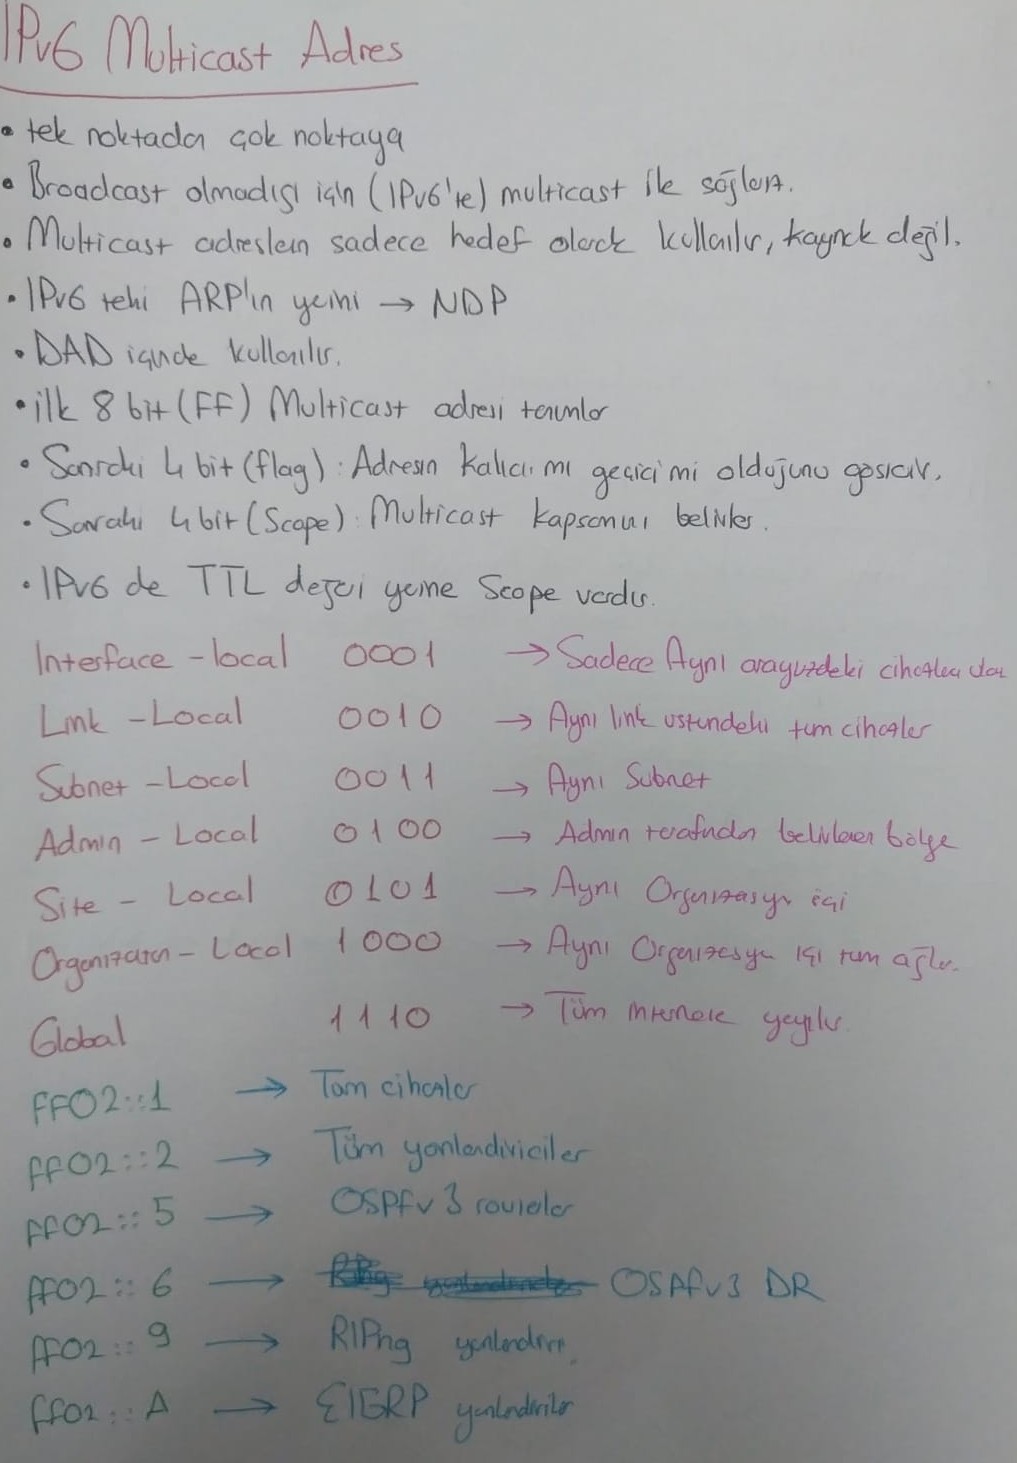 IPv6 Multicast Adres
• tek noktadan çok noktaya
• Broadcast olmadığı için (IPv6'te) multicast ile sağlanır.
• Multicast adresleri sadece hedef olarak kullanılır, kaynak değil.
• IPv6 teki ARP'ın yerini → NDP
• DAD içinde kullanılır.
• ilk 8 bit (FF) Multicast adresi tanımlar
• Sonraki 4 bit (flag) : Adresin kalıcı mı geçici mi olduğunu gösterir.
• Sonraki 4 bit (Scope) : Multicast kapsamını belirler.
• IPv6 de TTL değeri yerine Scope vardır.
Interface - local 0001 → Sadece Aynı arayüzdeki cihazlara
Link - Local 0010 → Aynı link üstündeki tüm cihazlar
Subnet - Local 0011 → Aynı Subnet
Admin - Local 0100 → Admin tarafından belirlenen bölge
Site - Local 0101 → Aynı Organizasyon içi
Organizaton - Local 1000 → Aynı Organizasyon içi tüm ağlar.
Global 1110 → Tüm internete yayılır
FF02::1 → Tüm cihazlar
FF02::2 → Tüm yönlendiriciler
FF02::5 → OSPFv3 routerlar
FF02::6 → OSPFv3 DR
FF02::9 → RIPng
FF02::A → EIGRP yönlendiriciler